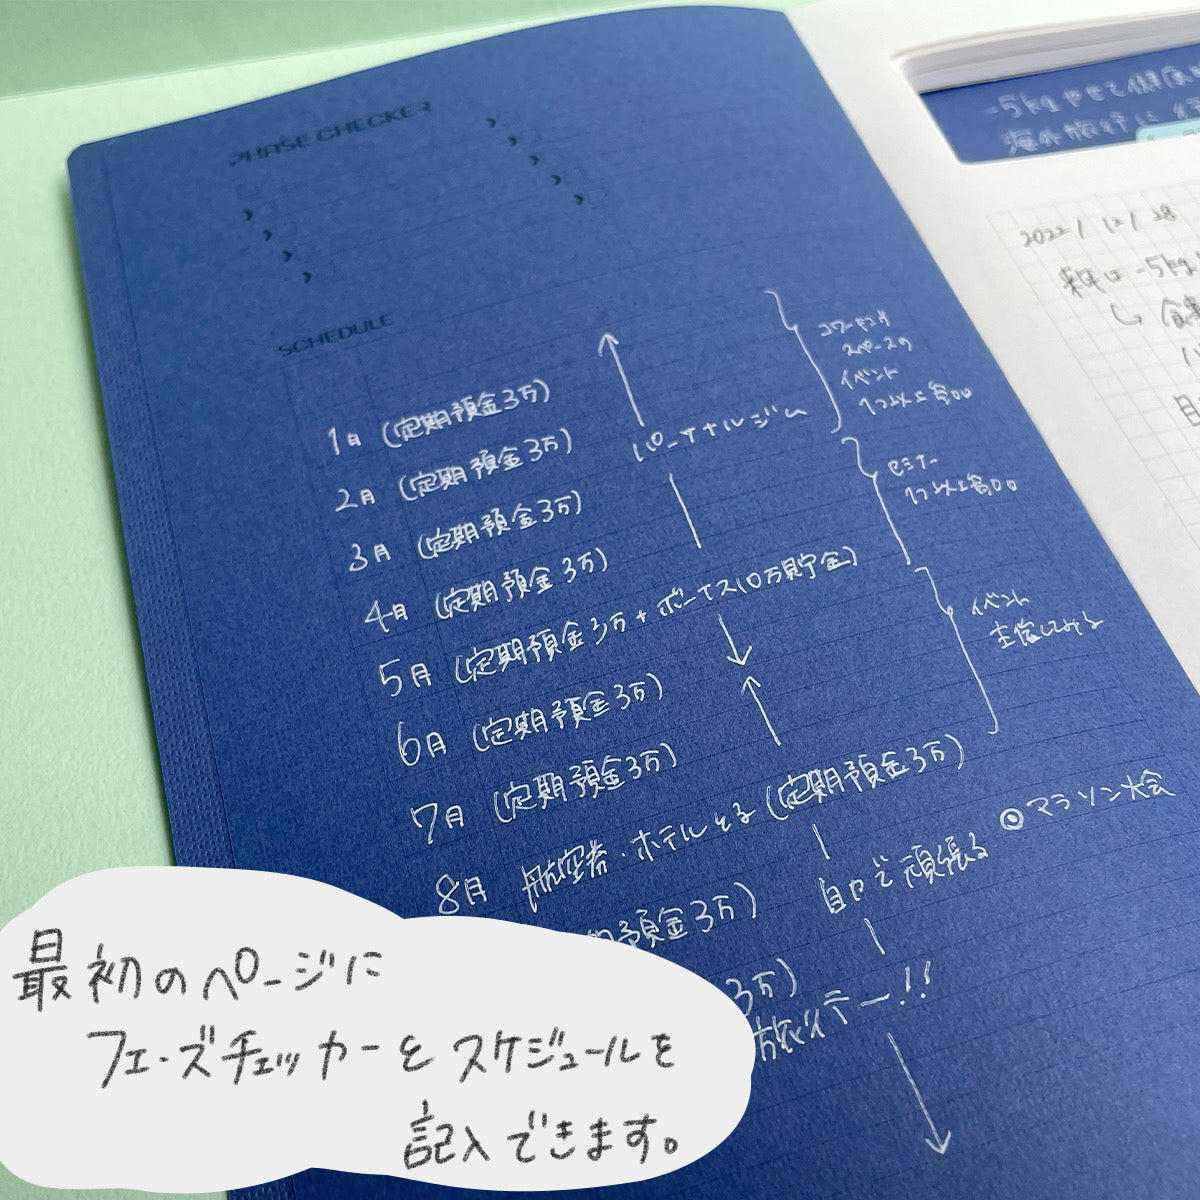 PHASE CHECKER
SCHEDULE
1月 (定期預金3万)
2月 (定期預金3万)
3月 (定期預金3万)
4月 (定期預金3万)
5月 (定期預金3万 + ボーナス10万貯金)
6月 (定期預金3万)
7月 (定期預金3万)
8月 航空券・ホテルとる (定期預金3万)
期預金3万)
3万)
旅行ー!!
パーソナルジム
自力で頑張る
◎マラソン大会
コワーキング
スペースの
イベント
1つ以上参加
セミナー
1つ以上参加
イベント
主催してみる
-5kgやせて
海外旅行に
2022/12/28
来年は-5kg
最初のページに
フェーズチェッカーとスケジュールを
記入できます。